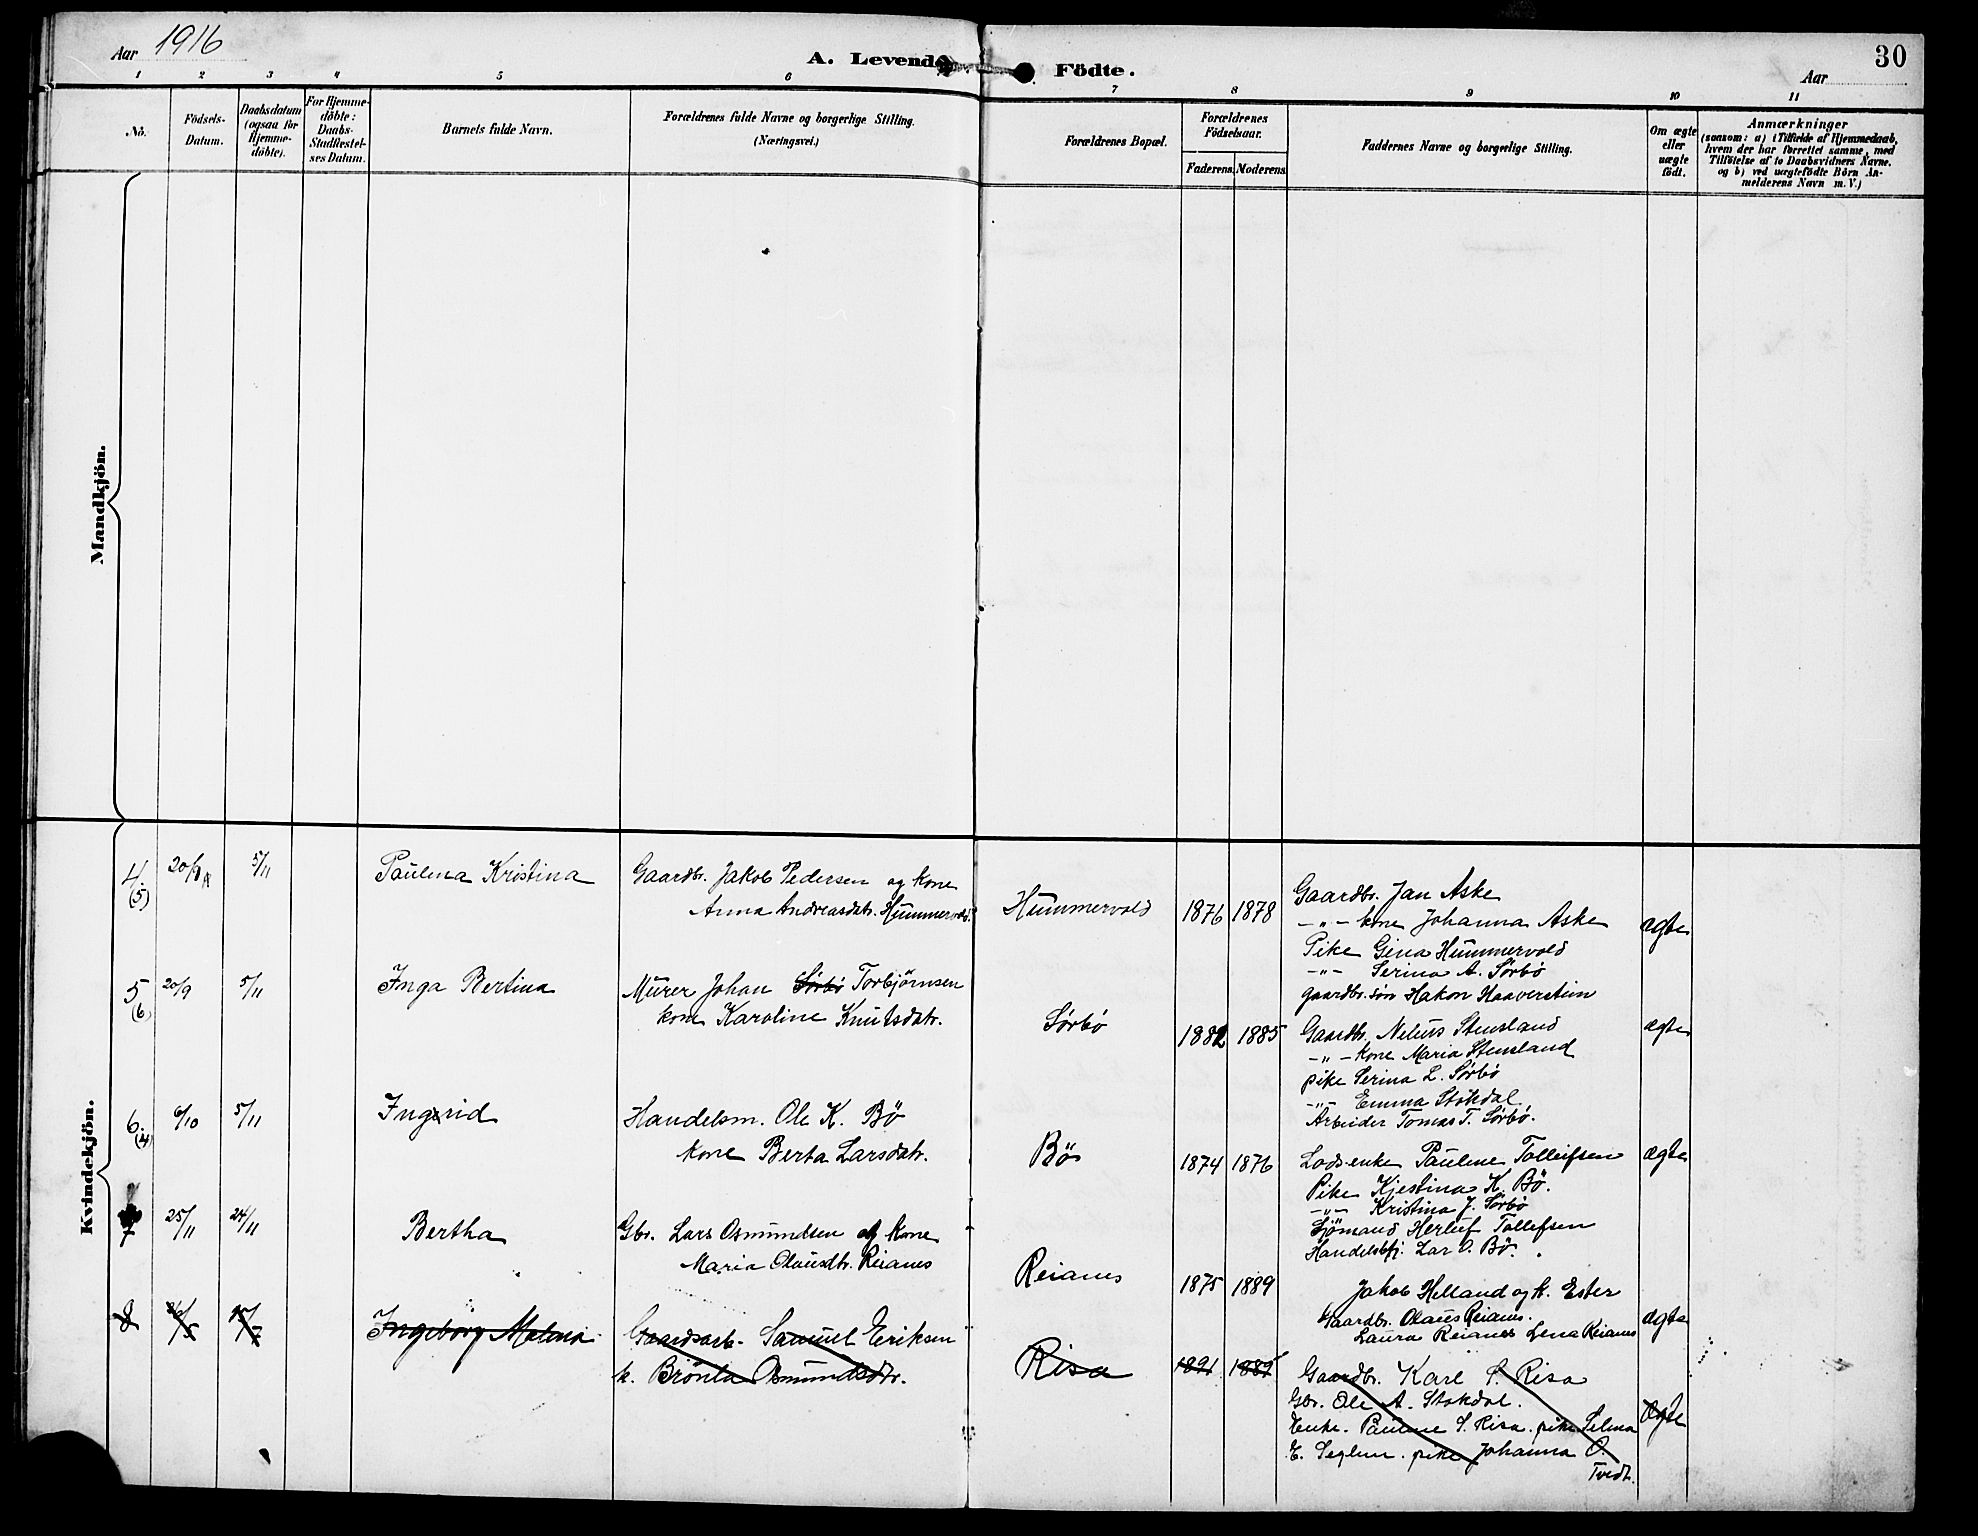 Aar 1916
A. Levende Födte.
30
Aar
1 2 3 4 5 6 7 8 9 10 11
No.
Födsels-
Datum.
Daabsdatum
(ogsaa for
Hjemme-
döbte).
For Hjemme-
döbte:
Daabs-
Stadfæstel-
ses Datum.
Barnets fulde Navn.
Forældrenes fulde Navne og borgerlige Stilling.
(Næringsvei.)
Forældrenes Bopæl.
Forældrenes
Födselsaar.
Faderens. Moderens.
Faddernes Navne og borgerlige Stilling.
Om ægte
eller
uægte
födt.
Anmærkninger
(saasom: a) i Tilfælde af Hjemmedaab,
hvem der har forrettet samme, med
Tilföielse af to Daabsvidners Navne.
og b) ved uægtefödte Börn An-
melderens Navn m. V.)
Mandkjön.
Kvindekjön.
4.
(5)
20/9
5/11
Paulina Kristina
Gaardbr. Jakob Pedersen og kone
Anna Andreasdatr. Hummervold
Hummervold
1876 1878
Gaardbr. Jan Aske
-"- kone Johanna Aske
Pike Gina Hummervold
-"- Serina A. Sörbö
gaardbr. sön Hakon Haaverstein
ægte
5
(6)
20/9
5/11
Inga Bertina
Murer Johan Sörbö Torbjörnsen
kone Karoline Knutsdatr.
Sörbö
1882 1885
Gaardbr. Nelius Stensland
-"- kone Maria Stensland
pike Serina L. Sörbö
-"- Emma Stokdal
Arbeider Tomas T. Sörbö.
ægte
6.
(4)
6/10
5/11
Ingerid
Handelsm. Ole K. Bö
kone Berta Larsdatr.
Bö
1874 1876
Lodsenke Pauline Tolleifsen
Pike Kjestina K. Bö.
-"- Kristina J. Sörbö
Sjömand Herluf Tollefsen
Handelsbtj. Lar O. Bö.
ægte
7
25/11
24/11
Bertha
Gbr. Lars Osmundsen og kone
Maria Olausdtr. Reianes
Reianes
1875 1889
Jakob Helland og k. Ester
Gaardbr. Olaus Reianes.
Laura Reianes Lena Reianes
ægte
8
Ingeborg Malena
Gaardsarb. Samuel Eriksen
k. Brönla Osmundsdtr.
Risa
1891
Gaardbr. Karl S. Risa
Gbr. Ole A. Stokdal.
Enke. Pauline S. Risa. pike Selma
E. Seglem. pike Johanna O.
Tvedt.
Ægte